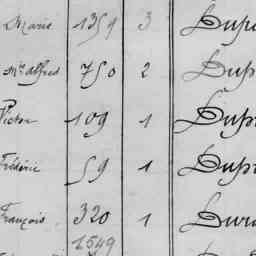 Marie 1359 3 Dupu
Mce Alfred 750 2 Dup
Victor 109 1 Dupr
Frédéric 59 1 Dupr
François 320 1 Dura
1549